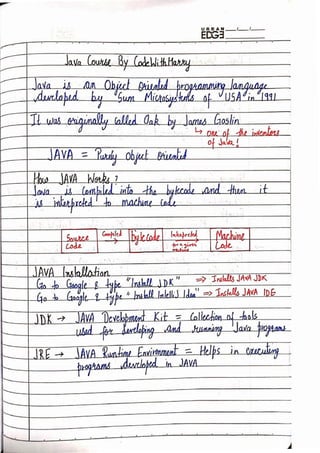 URBAN
EDGE
Java Course By CodeWithHarry
Java is an Object Oriented programming language
developed by Sun Microsystems of USA in 1991
It was originally called Oak by James Goslin
↳ one of the inventors
of Java!
JAVA = Purely Object Oriented
How JAVA Works?
Java is Compiled into the bytecode and then it
is interpreted to machine code
Source Code
Compiled →
bytecode
Interpreted →
Machine Code
JAVA Installation
Go to Google & type "Install JDK" ⇒ Installs JAVA JDK
Go to Google & type "Install IntelliJ Idea" ⇒ Installs JAVA IDE
JDK → JAVA Development Kit = Collection of tools
used for developing and running Java programs
JRE → JAVA Runtime Environment = Helps in executing
programs developed in JAVA